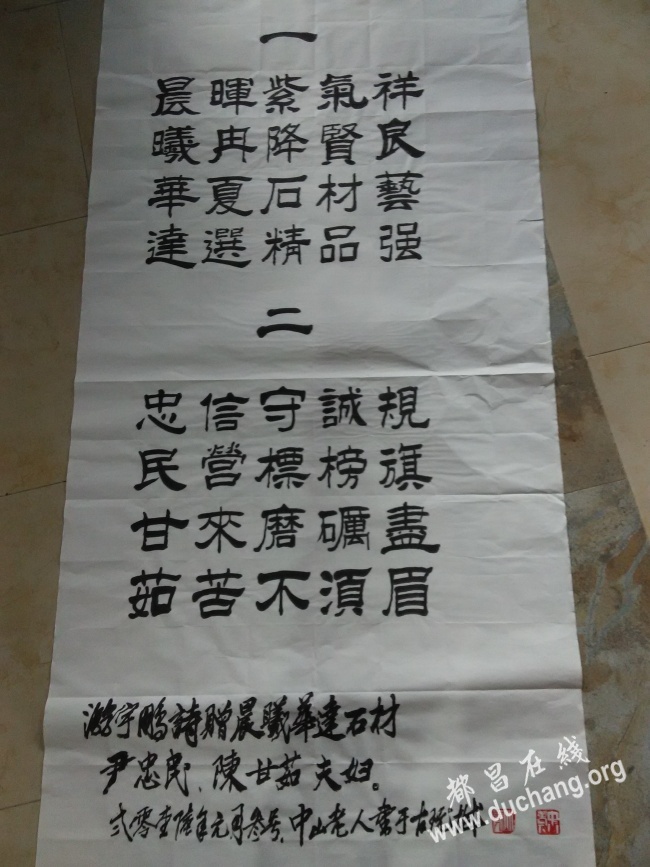 一
晨暉紫氣祥
曦冉降賢良
華夏石材藝
達選精品强
二
忠信守誠規
民營標榜旗
甘來磨礪盡
茹苦不湏眉
游宇鵬詩贈晨曦華達石材
尹忠民、陳甘茹夫妇。
弍零壹陸年元月叁号,中山老人書于古
都昌在线
www.duchang.org